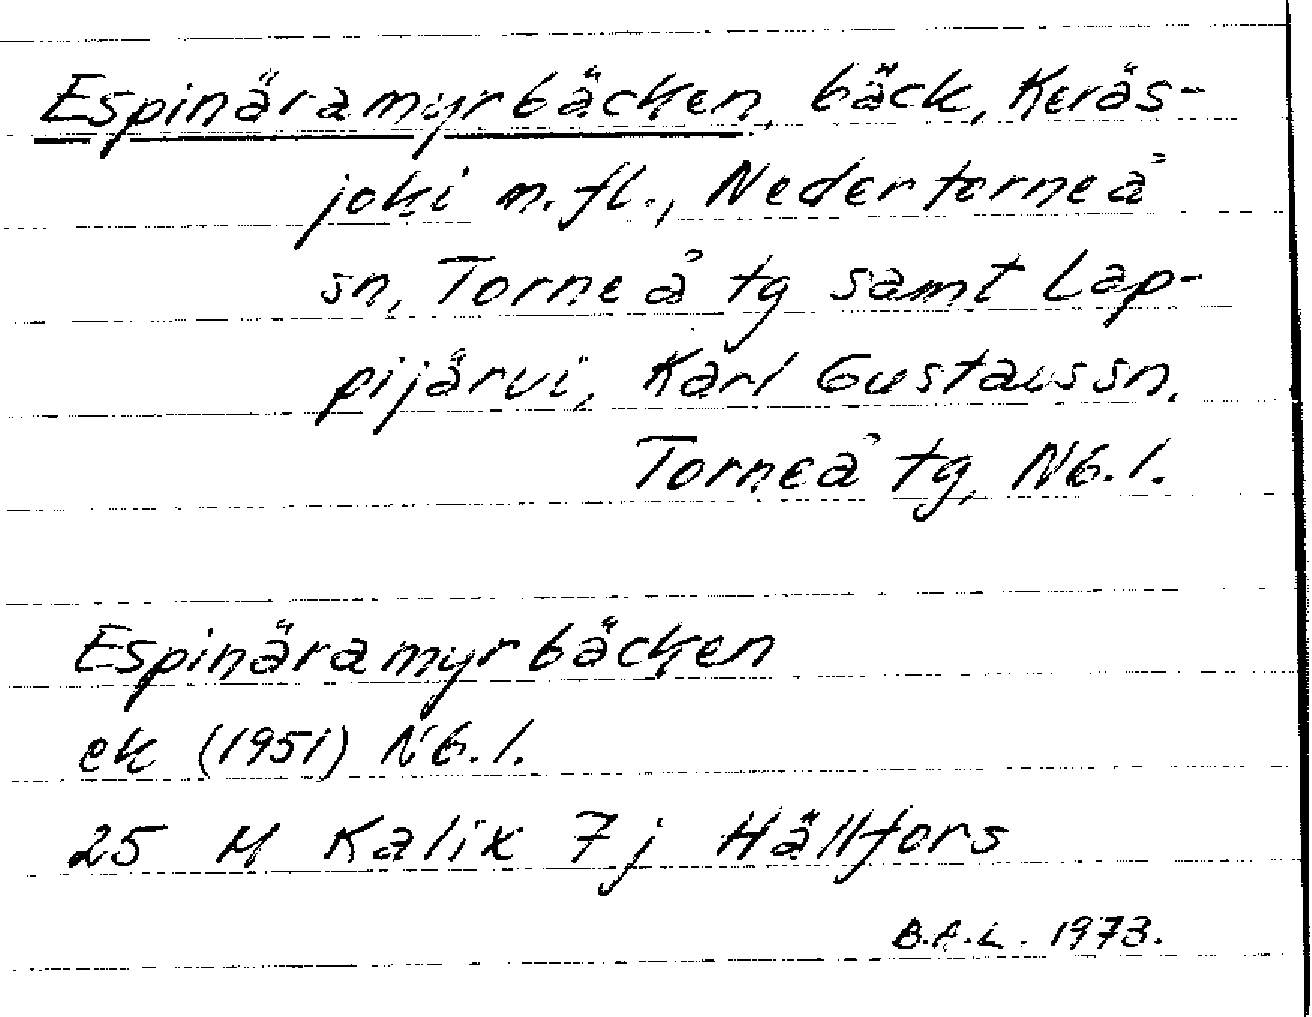 Espinäramyrbäcken, bäck, Keräs-
joki m.fl., Nedertorneå
sn, Torneå tg samt Lap-
pijärvi, Karl Gustavs sn,
Torneå tg, Nb.l.
Espinäramyrbäcken
ek (1951) Nb.l.
25 M Kalix 7j Hällfors
B.A.L. 1973.